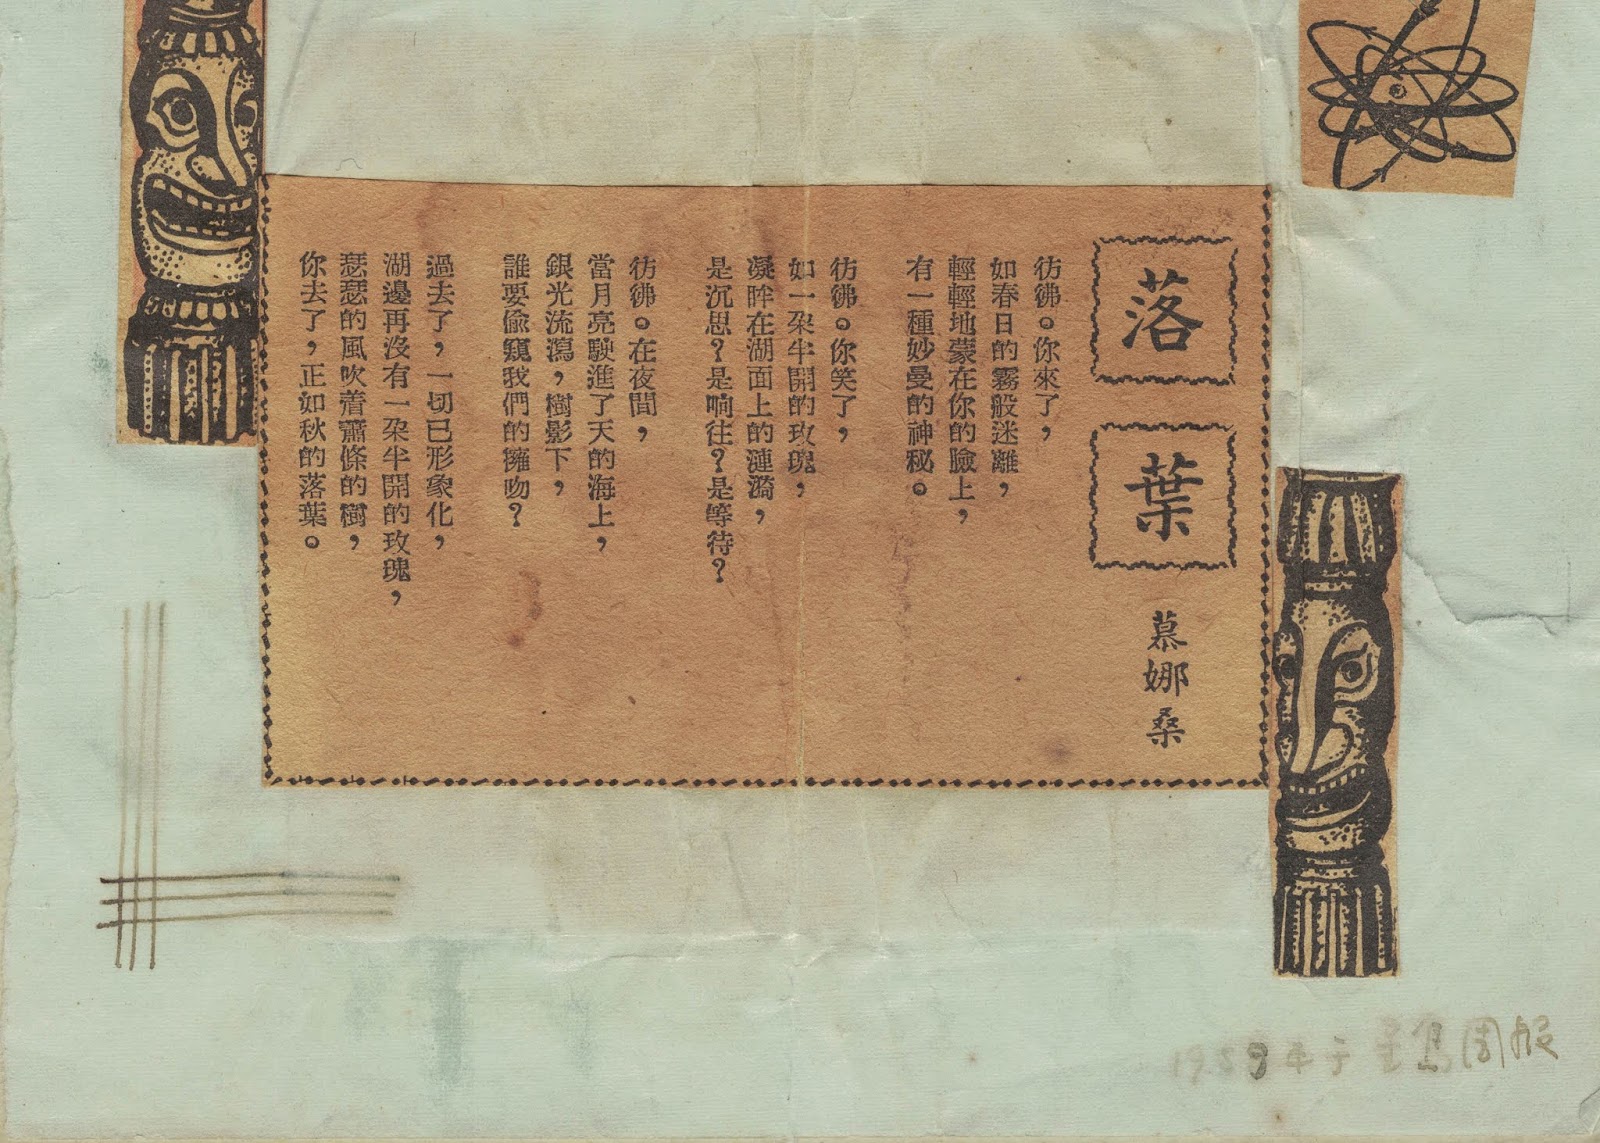 落葉
慕娜桑
彷彿。你來了,
如春日的霧般迷離,
輕輕地蒙在你的臉上,
有一種妙曼的神秘。
彷彿。你笑了,
如一朶半開的玫瑰,
凝眸在湖面上的漣漪,
是沉思?是响往?是等待?
彷彿。在夜間,
當月亮駛進了天的海上,
銀光流瀉,樹影下,
誰要偷窺我們的擁吻?
過去了,一切已形象化,
湖邊再沒有一朶半開的玫瑰,
瑟瑟的風吹着蕭條的樹,
你去了,正如秋的落葉。
1959年于星島周报